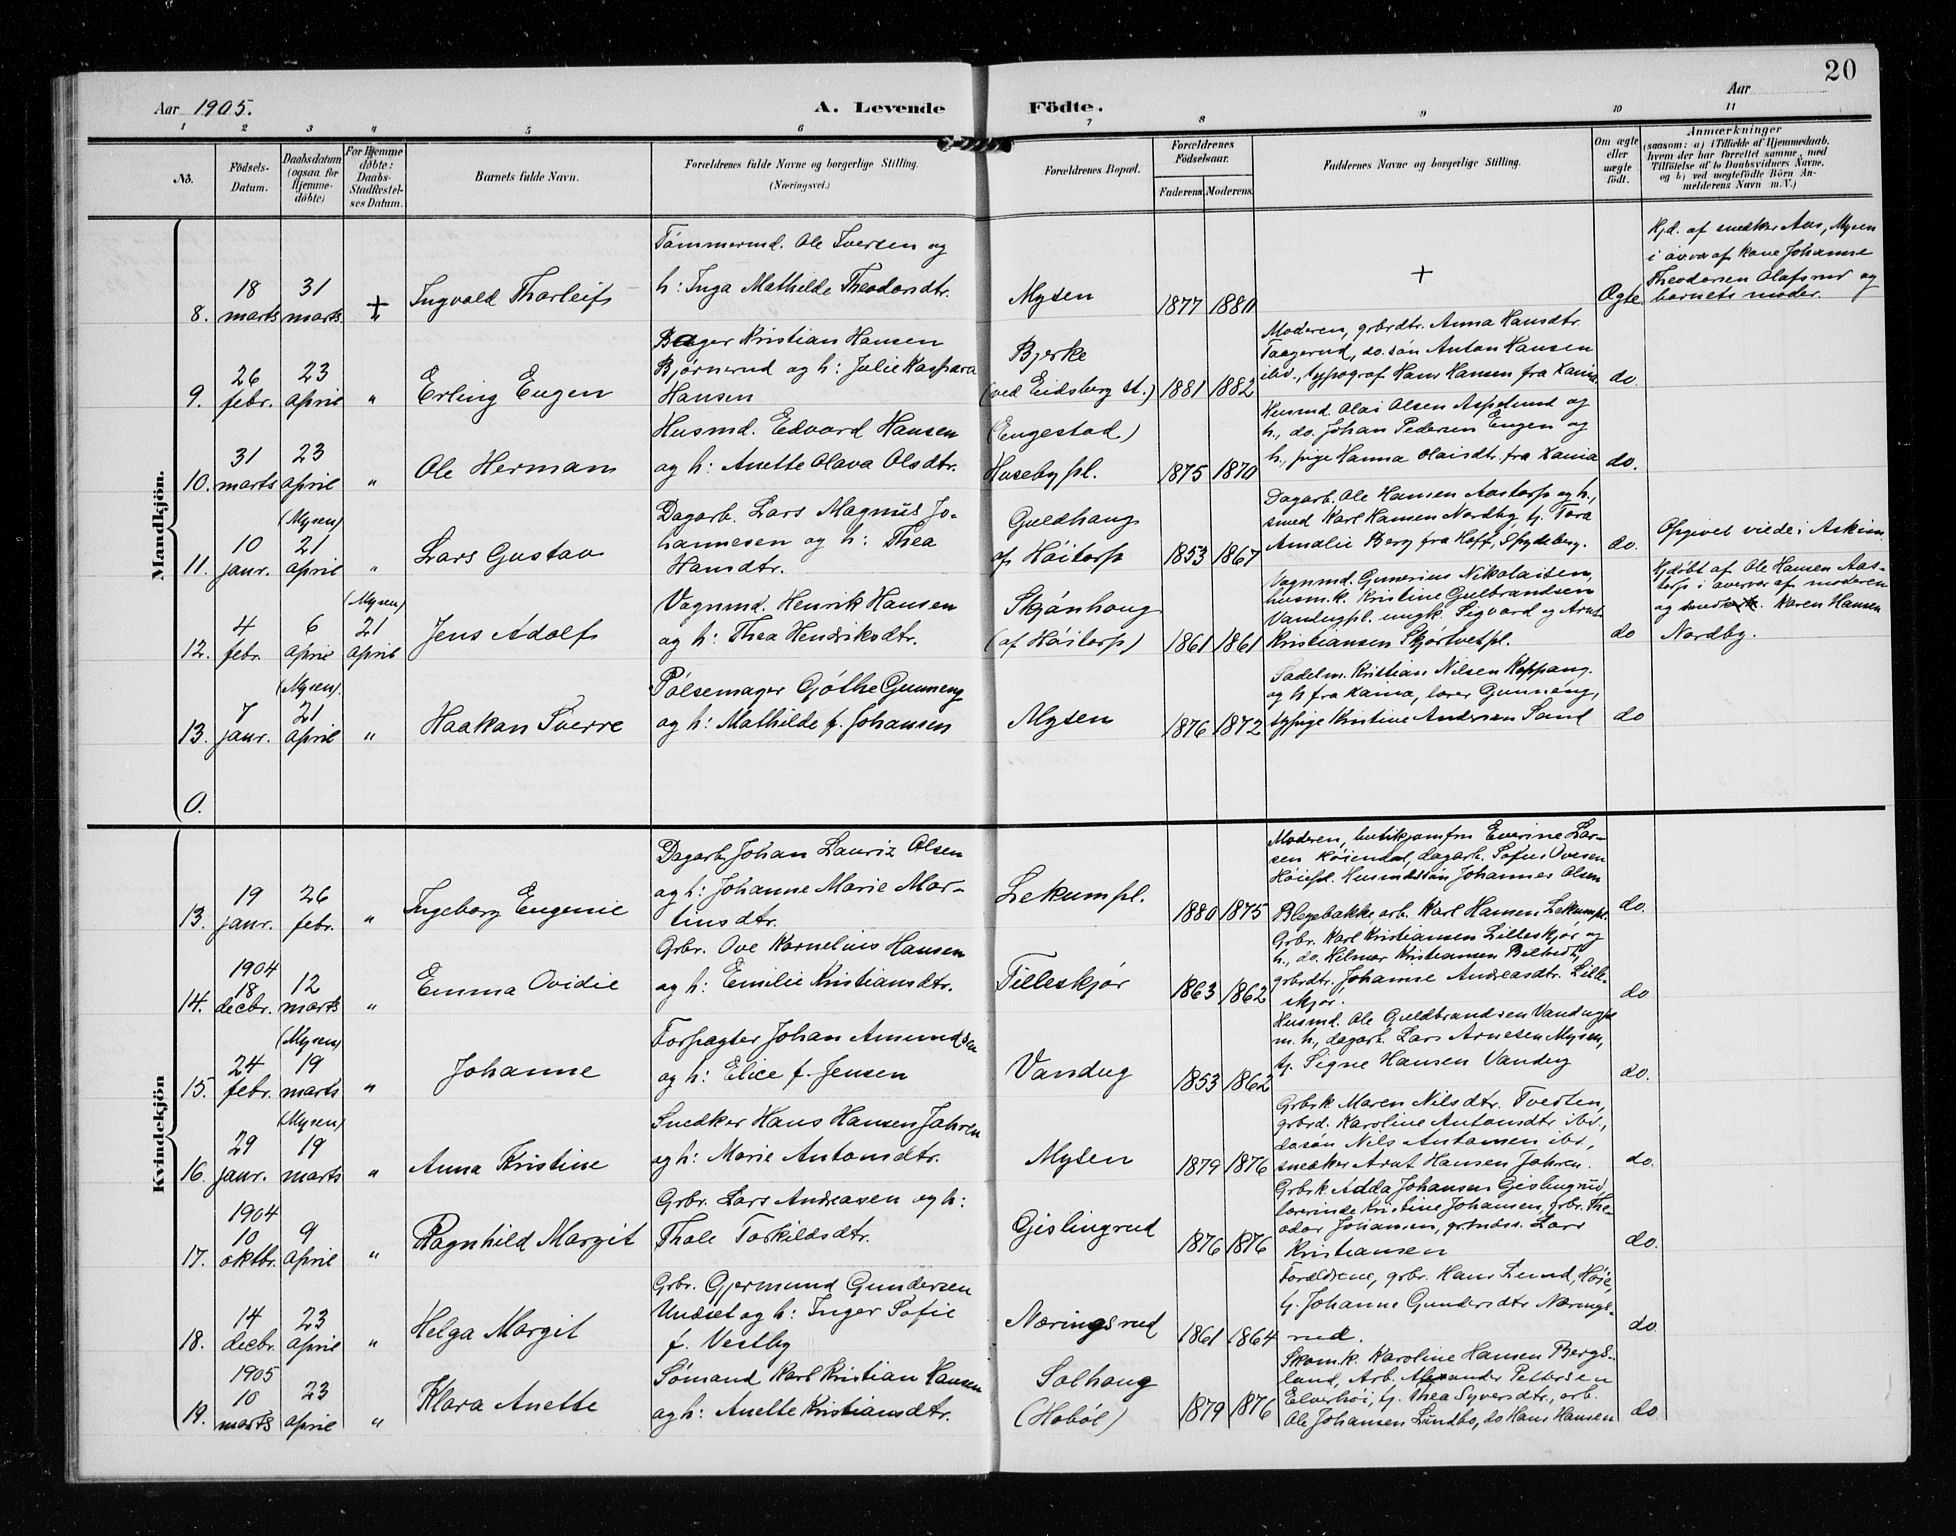 20
Aar 1905.
A. Levende Födte.
Aar
1 2 3 4 5 6 7 8 9 10 11
No.
Födsels-Datum.
Daabsdatum (ogsaa for Hjemmedöbte)
For Hjemmedöbte: Daabs-Stadfestelses Datum.
Barnets fulde Navn.
Forældrenes fulde Navne og borgerlige Stilling. (Næringsvei.)
Forældrenes Bopæl.
Forældrenes Födselsaar.
Faderens. Moderens.
Faddernes Navne og borgerlige Stilling.
Om ægte eller uægte födt.
Anmærkninger (saasom: a) i Tilfælde af Hjemmedaab, hvem der har forrettet samme, med Tilföielse af to Daabsvidners Navne, og b) ved uegtefödte Börn Anmelderens Navn m. V.)
Mandkjön.
8. 18 marts 31 marts + " Ingvald Thorleif
Tømmermd. Ole Iversen og
h: Inga Mathilde Theodorsdtr.
Mysen 1877 1880 + Ægte
Hjd. af snedker Aas, Mysen
i overv. af kone Johanne
Theodorsen Olafsrud og
barnets moder.
9. 26 febr. 23 april " Erling Eugen
Bager Kristian Hansen
Bjørnerud og h: Julie Kaspara
Hansen
Bjerke
(ved Eidsberg st.) 1881 1882
Moderen, grbrdtr. Anna Hansdtr.
Taagerud, do. søn Anton Hansen
ibd., typograf Hans Hansen fra Xania do.
10. 31 marts 23 april " Ole Herman
Husmd. Edvard Hansen
og h: Anette Olava Olsdtr.
(Engestad)
Huseby pl. 1875 1870
Husmd. Olai Olsen Aspelund og
h., do. Johan Pedersen Engen og
h., pige Hanna Olaisdtr. fra Xania do.
11. 10 janr. (Mysen) 21 april " Lars Gustav
Dagarb. Lars Magnus Jo-
hannesen og h: Thea
Hansdtr.
Guldhaug
af Høitorp 1853 1867
Dagarb. Ole Hansen Aastorp og h.,
smed Karl Hansen Nordby, tj. Tora
Amalie Berg fra Hoff, Spydeberg. do.
Opgivet viede i Askim.
12. 4 febr. 6 april (Mysen) 21 april Jens Adolf
Vognmd. Henrik Hansen
og h: Thea Hendriksdtr.
Skjønhaug
(af Høitorp) 1861 1861
Vognmd. Gunerius Nikolaisen,
husm.k. Kristine Gulbrandsen
Vandugpl. ungk. Sigvard og Arnt
Kristiansen Skjørtvetpl. do
Hjdøbt af Ole Hansen Aas-
torp i overvær af moderen
og Karen Hansen
Nordby.
13. 7 janr. (Mysen) 21 april " Haakon Sverre
Pølsemager Gøthe Gunneng
og h: Mathilde f. Johansen
Mysen 1876 1872
Sadelm. Kristian Nilsen Koppang.
og h fra Xania, lærer Gunneng,
sypige Kristine Andersen Sand do
0.
Kvindekjön
13. 19 janr. 26 febr. " Ingeborg Eugenie
Dagarb. Johan Lauriz Olsen
og h: Johanne Marie Mar-
tinsdtr.
Lekumpl. 1880 1875
Moderen, butikjomfru Everine Lar-
sen Høiendal, dagarb. Sofus Ovesen
Høiepl. Husmdssøn Johannes Olsen
Blegebakke, arb. Karl Hansen Lekumpl. do.
14. 1904 18 decbr. 12 marts " Emma Ovidie
Grbr. Ove Kornelius Hansen
og h: Emilie Kristiansdtr.
Lilleskjør 1863 1862
Grbr. Karl Kristiansen Lilleskjør og
h., do. Helmar Kristiansen Biltvedt,
grbrdtr. Johanne Andreasdtr. Lille-
skjør. do
15. 24 febr. (Mysen) 19 marts " Johanne
Forpagter Johan Amundsen
og h: Elice f. Jensen
Vandug 1853 1862
Husmd. Ole Guldbrandsen Vandugpl
m. h., dagarb. Lars Arnesen Mysen,
tj. Signe Hansen Vandug do.
16. 29 janr. (Mysen) 19 marts " Anna Kristine
Snedker Hans Hansen Jahren
og h: Marie Antonsdtr.
Mysen 1879 1876
Grbrk. Maren Nilsdtr. Tveten,
grbrd. Karoline Antonsdtr ibd.,
do søn Nils Antonsen ibd,
snedker Arnt Hansen Jahren. do.
17. 1904 10 oktbr. 9 april " Ragnhild Margit
Grbr. Lars Andreasen og h:
Thale Torkildsdtr.
Gislingrud 1876 1876
Grbrk. Adda Johansen Gislingrud,
lærerinde Kristine Johansen, grbr. The-
odor Johansen, grbrdss. Lars
Kristiansen do.
18. 14 decbr. 23 april " Helga Margit
Grbr. Gjermund Gundersen
Undset og h: Inger Sofie
f. Vestby
Næringsrud 1861 1864
Forældrene, grbr. Hans Lund, Høie,
tj. Johanne Gundersdtr Nærings-
rud. do
19. 1905 10 marts 23 april " Klara Anette
Sømand Karl Kristian Hansen
og h: Anette Kristiansdtr.
Solhaug
(Hobøl) 1879 1876
Skom.k. Karoline Hansen Bergs-
land, Arb. Alexander Pettersen
Elverhøi, tj. Thea Syversdtr., arb.
Ole Johansen Lundbo, do Hans Hansen do